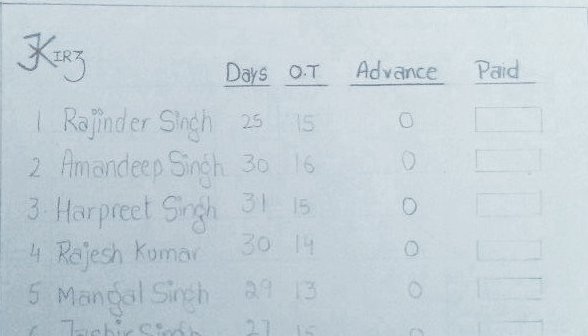 Days O.T Advance Paid
1 Rajinder Singh 25 15 0
2 Amandeep Singh 30 16 0
3 Harpreet Singh 31 15 0
4 Rajesh Kumar 30 14 0
5 Mangal Singh 29 13 0
6 Singh 27 15 0